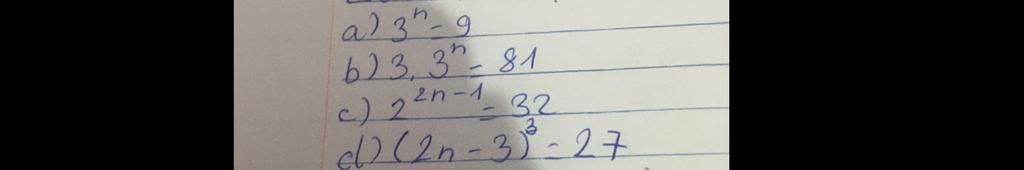 a) 3ⁿ = 9
b) 3. 3ⁿ = 81
c) 2²ⁿ⁻¹ = 32
d) (2n - 3)³ = 27